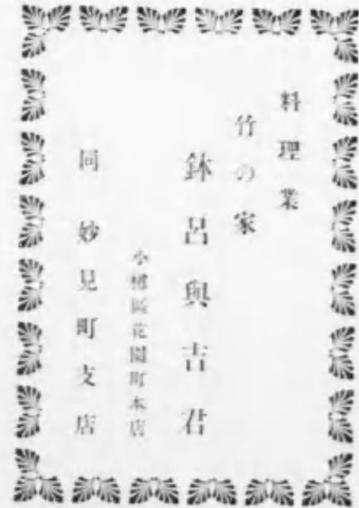 料理業
竹の家
鉢呂與吉君
小樽區花園町本店
同妙見町支店